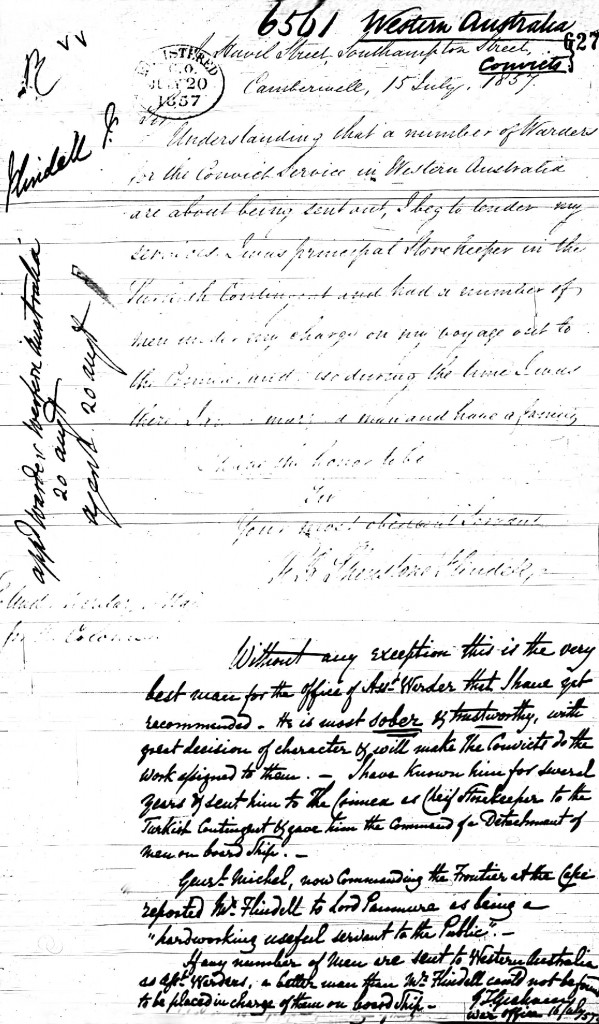 6561 Western Australia
627
Convicts
Street, Southampton Street,
Camberwell, 15 July, 1857.
REGISTERED
C.O.
JULY 20
1857
Sir
Understanding that a number of Warders
for the Convict Service in Western Australia
are about being sent out, I beg to tender my
services. I was principal Storekeeper in the
Turkish Contingent and had a number of
men under my charge on my voyage out to
the Crimea and also during the time I was
there I am a married man and have a family
I have the honor to be
Sir
Your most obedient Servant
Flindell
Flindell
appd Warder Western Australia
20 augt
agent 20 augt
Without any exception this is the very
best man for the office of Asst Warder that I have yet
recommended. He is most sober & trustworthy, with
great decision of character & will make the Convicts do the
work assigned to them. — I have known him for several
years & sent him to the Crimea as Cheif Storekeeper to the
Turkish Contingent & gave him the Command of a Detachment of
men on board Ship. —
Genrl. Michel, now Commanding the Frontier at the Cape
reported Mr. Flindell to Lord Panmure as being a
"hardworking useful servant to the Public". —
If any number of Men are sent to Western Australia
as asst. Warders, a better man than Mr. Flindell could not be found
to be placed in charge of them on board Ship —
War Office 16 July 57